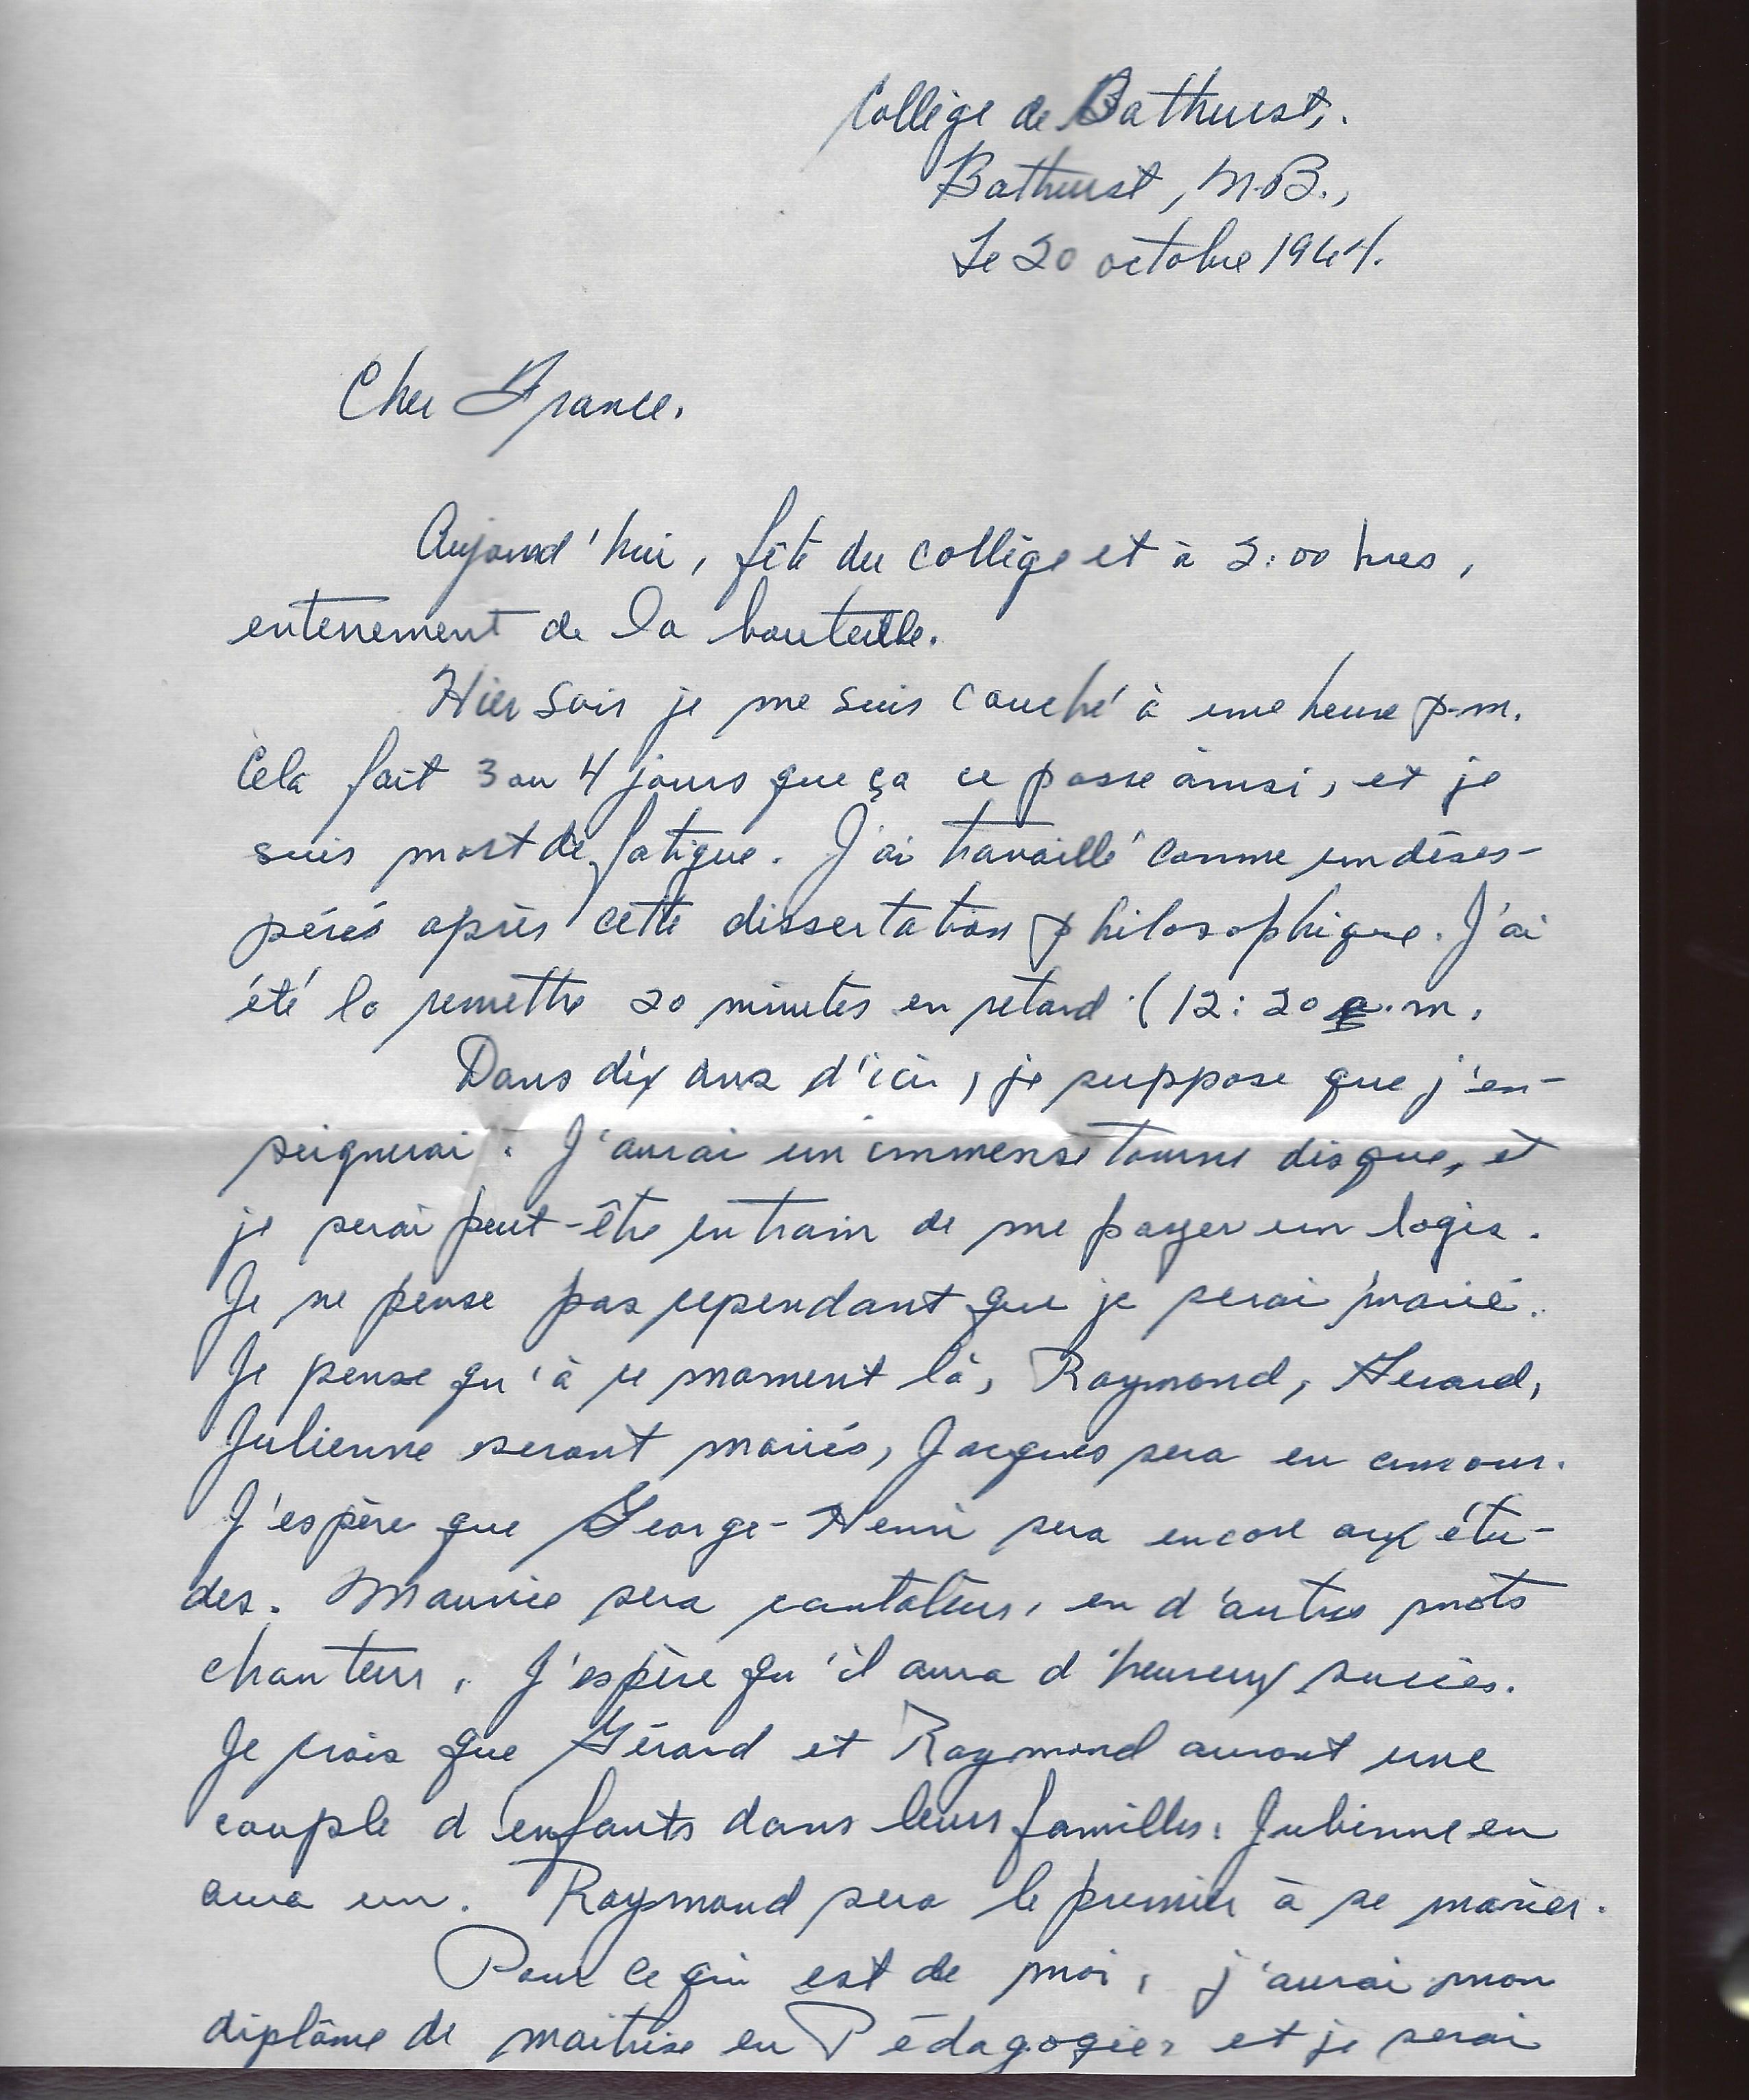 Collège de Bathurst,.
Bathurst, N.B.,
Le 20 octobre 1964.
Cher France.
Aujourd'hui, fête du collège et à 2:00 hres,
enterrement de la bouteille.
Hier soir je me suis couché à une heure p.m.
Cela fait 3 ou 4 jours que ça ce passe ainsi, et je
suis mort de fatigue. J'ai travaillé comme un déses-
pérés après cette dissertation philosophique. J'ai
été la remettre 20 minutes en retard (12:20 a.m.
Dans dix ans d'ici, je suppose que j'en-
seignerai. J'aurai un immense tourne disque, et
je serai peut-être en train de me payer un logis.
Je ne pense pas cependant que je serai marié.
Je pense qu'à ce moment là, Raymond, Gérard,
Julienne seront mariés, Jacques sera en amour.
J'espère que George-Henri sera encore aux étu-
des. Maurice sera cantateur, en d'autres mots
chanteur. J'espère qu'il aura d'heureux succès.
Je crois que Gérard et Raymond auront une
couple d'enfants dans leurs familles. Julienne en
aura un. Raymond sera le premier à se marier.
Pour ce qui est de moi, j'aurai mon
diplôme de maitrise en Pédagogie, et je serai